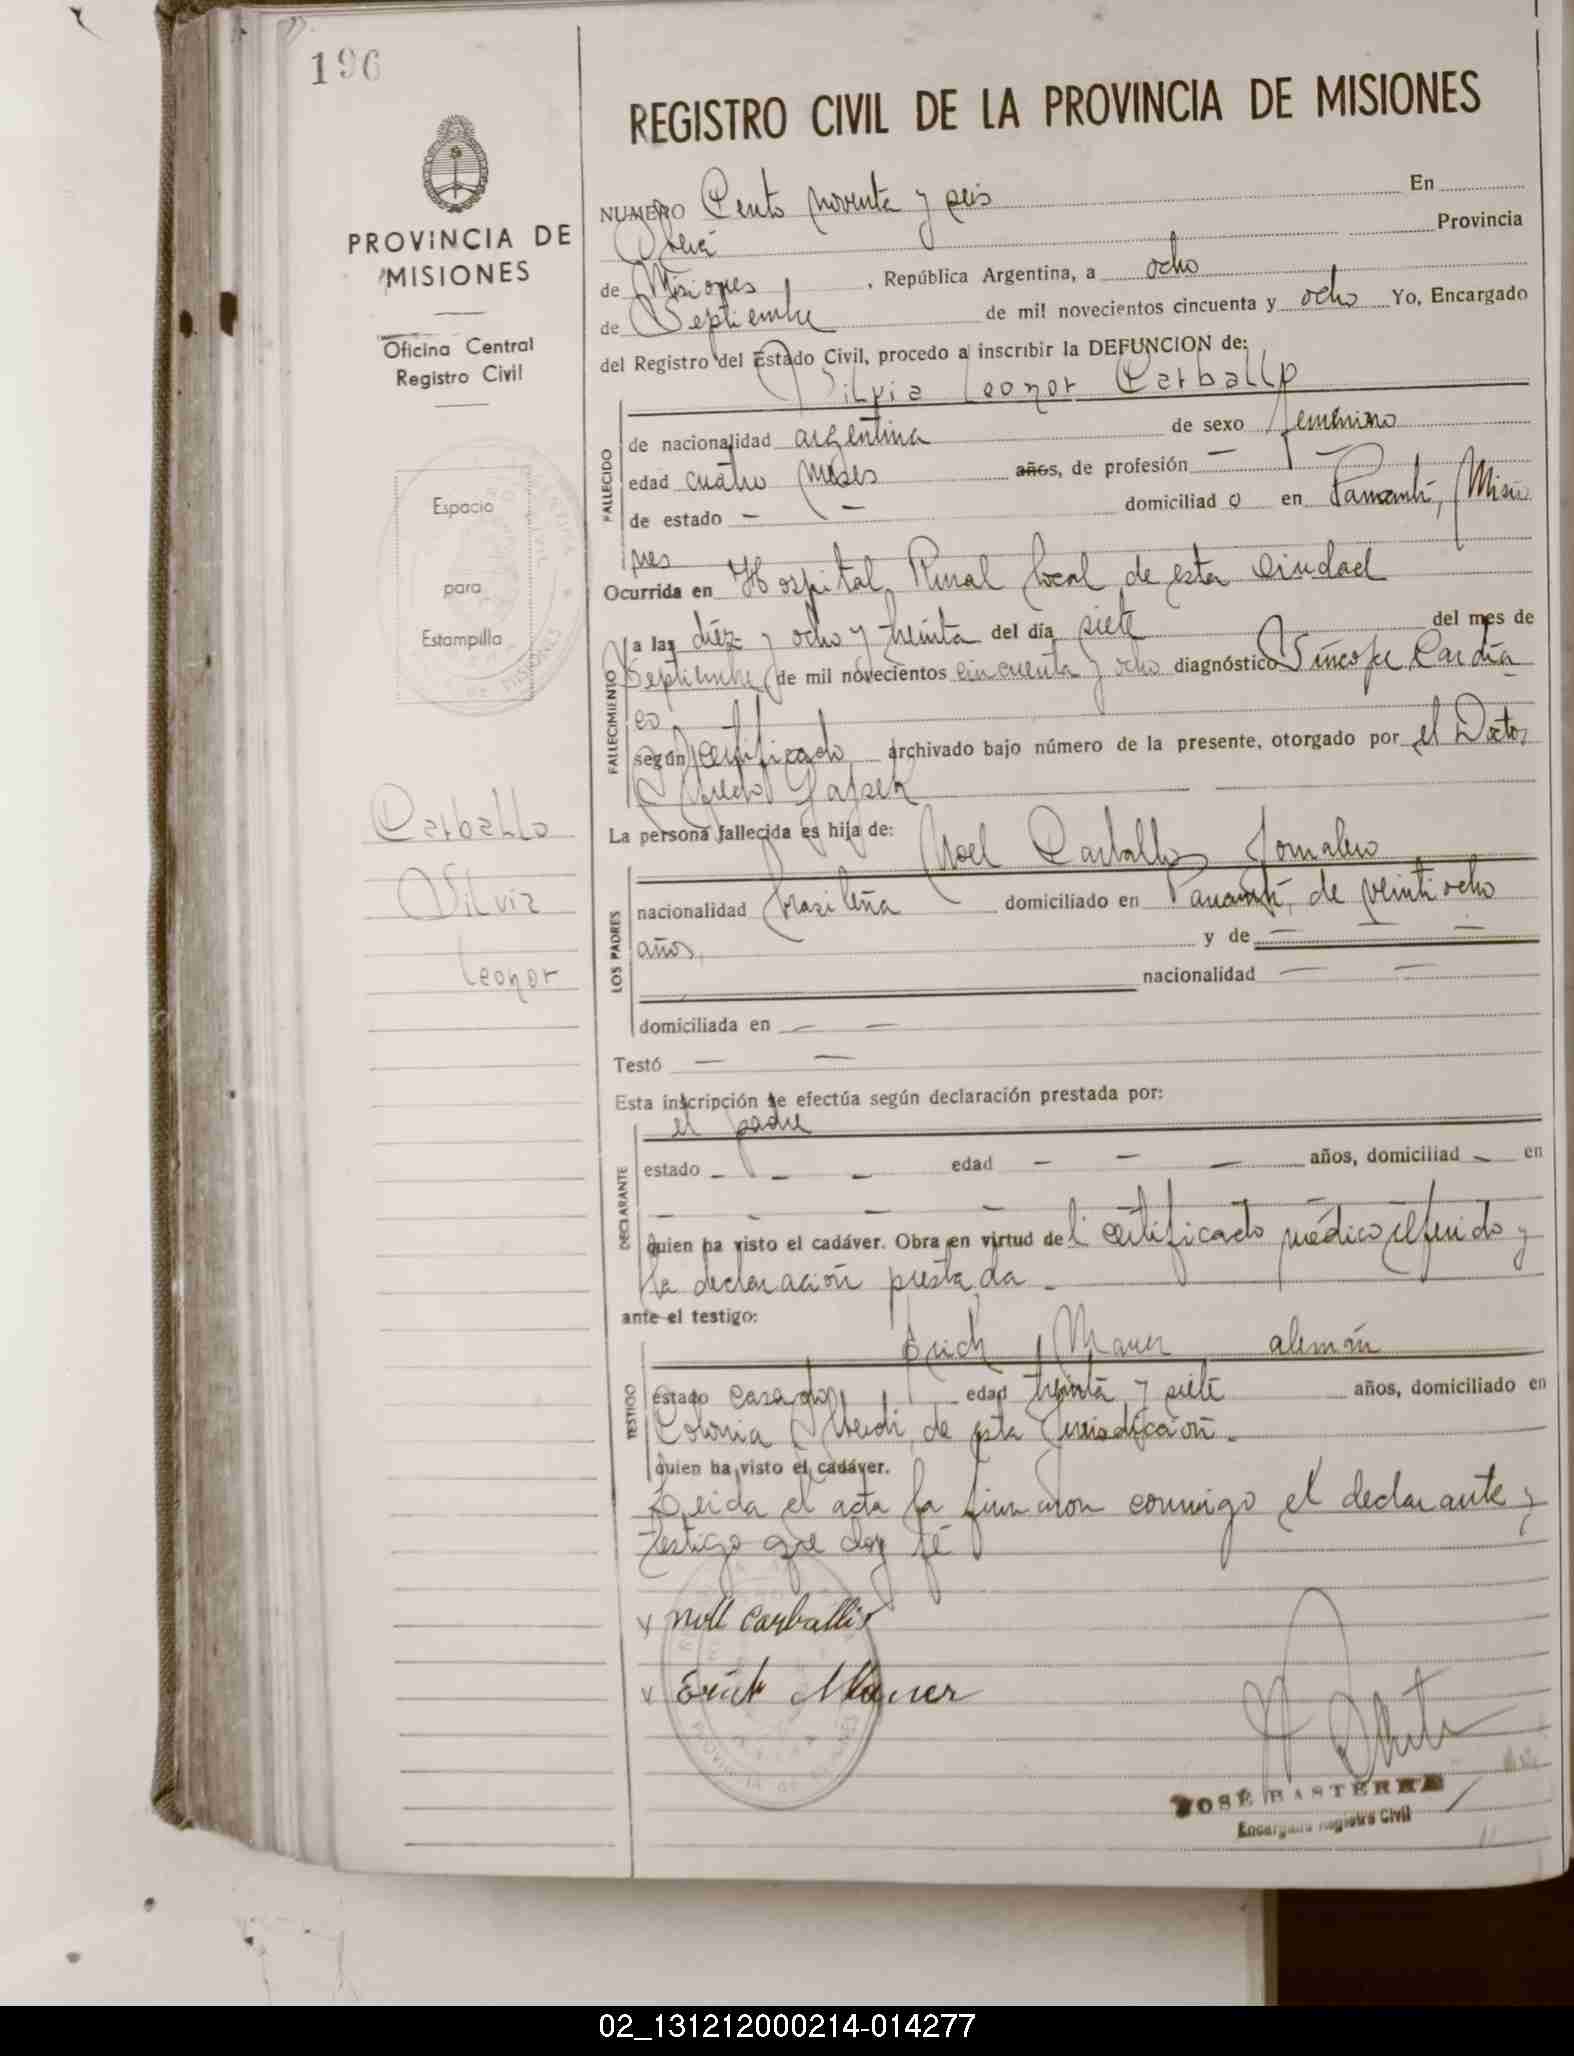 196
PROVINCIA DE
MISIONES
Oficina Central
Registro Civil
Espacio
para
Estampilla
Carballo
Silvia
Leonor
REGISTRO CIVIL DE LA PROVINCIA DE MISIONES
NUMERO Ciento noventa y seis En
Oberá Provincia
de Misiones, República Argentina, a ocho
de Septiembre de mil novecientos cincuenta y ocho Yo, Encargado
del Registro del Estado Civil, procedo a inscribir la DEFUNCION de:
Silvia Leonor Carballo
FALLECIDO
de nacionalidad argentina de sexo femenino
edad cuatro meses años, de profesión —
de estado — — domiciliado en Panambí, Misio
nes
Ocurrida en Hospital Rural local de esta Ciudad
FALLECIMIENTO
a las diez y ocho y treinta del día siete del mes de
Septiembre de mil novecientos cincuenta y ocho diagnóstico Síncope Cardía
co
según certificado archivado bajo número de la presente, otorgado por el Doctor
Alfredo
La persona fallecida es hija de:
Noel Carballo Jornalero
LOS PADRES
nacionalidad brasileña domiciliado en Panambí, de veintiocho
años, y de — — —
nacionalidad — —
domiciliada en — —
Testó — —
Esta inscripción se efectúa según declaración prestada por:
el padre
DECLARANTE
estado — — — edad — — — años, domiciliad — en
— — — — —
quien ha visto el cadáver. Obra en virtud del certificado médico referido y
la declaración prestada.
ante el testigo:
Erich Maurer alemán
TESTIGO
estado casado edad treinta y siete años, domiciliado en
Colonia Alberdi, de esta jurisdicción.
quien ha visto el cadáver.
Leida el acta la firmaron conmigo el declarante y
testigo que doy fé
x noll carballio
x Erich Maurer
JOSÉ BASTERRA
Encargado Registro Civil
02_131212000214-014277